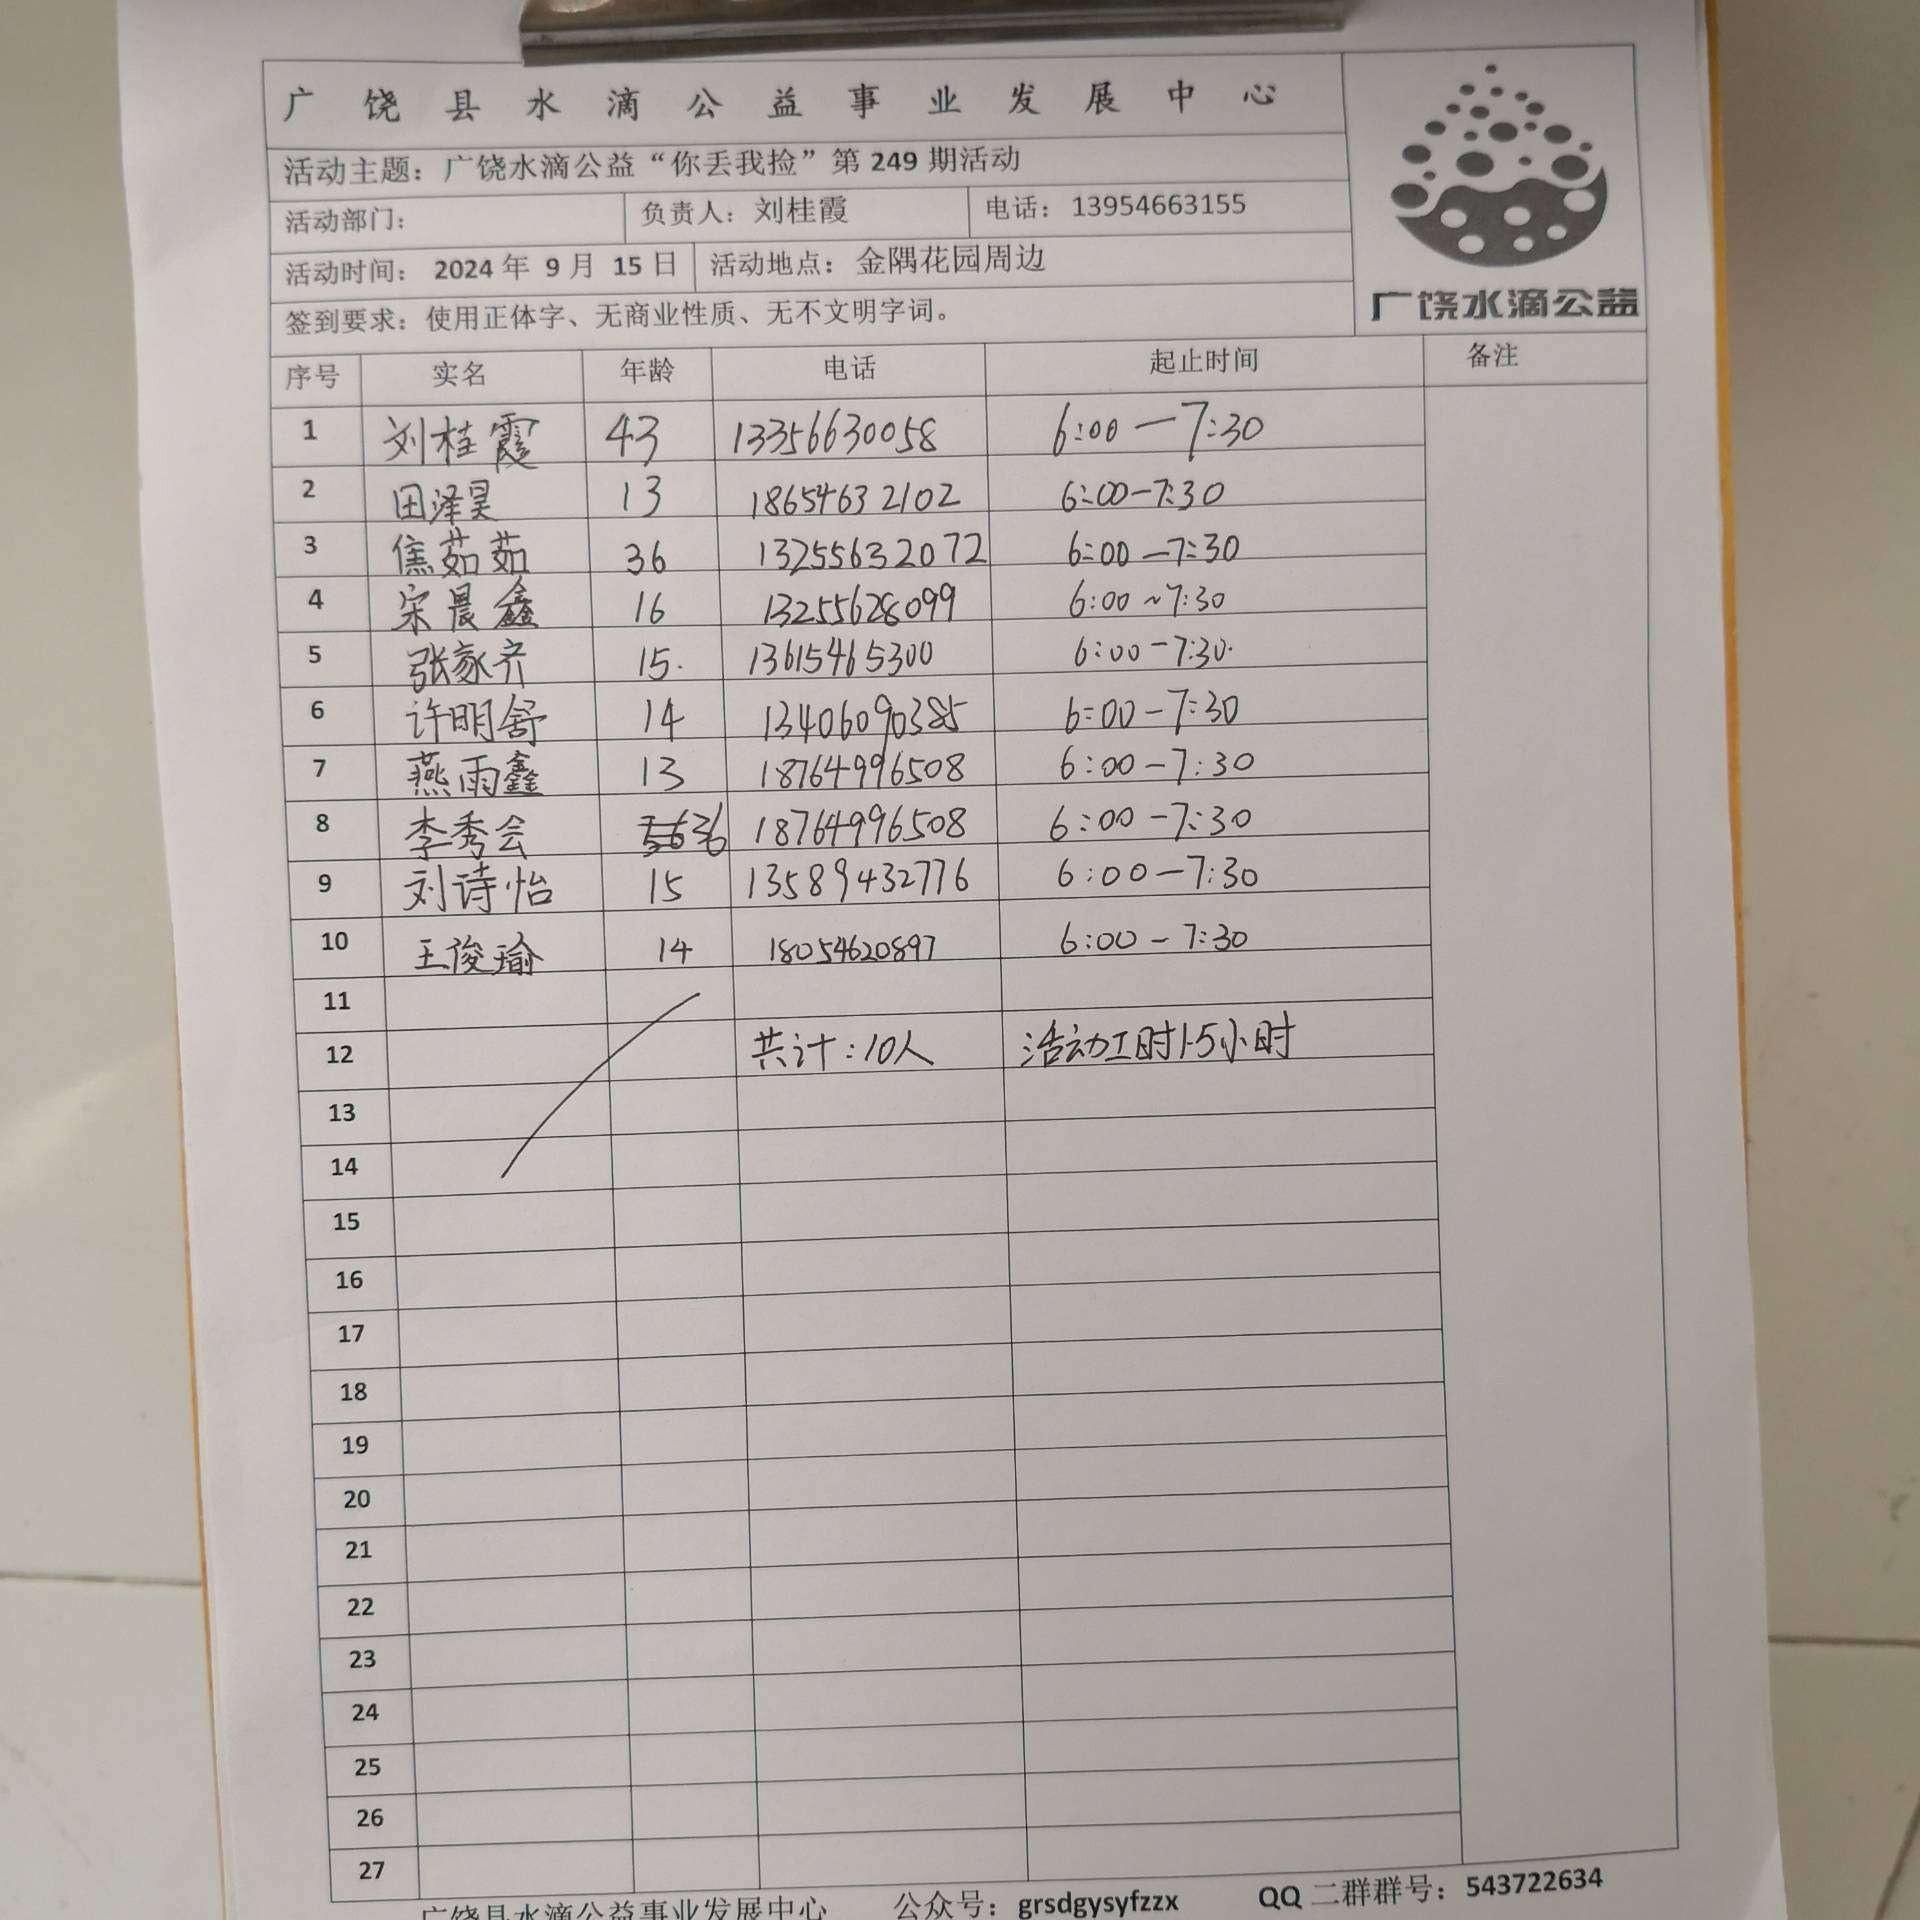 广饶县水滴公益事业发展中心
活动主题：广饶水滴公益“你丢我捡”第 249 期活动
活动部门： 负责人：刘桂霞 电话：13954663155
活动时间： 2024 年 9 月 15 日 活动地点：金隅花园周边
签到要求：使用正体字、无商业性质、无不文明字词。
广饶水滴公益
序号 实名 年龄 电话 起止时间 备注
1 刘桂霞 43 13356630058 6:00—7:30
2 田泽昊 13 18654632102 6:00-7:30
3 焦茹茹 36 13255632072 6:00-7:30
4 宋晨鑫 16 13255628099 6:00~7:30
5 张家齐 15. 13615465300 6:00-7:30.
6 许明舒 14 13406090385 6:00-7:30
7 燕雨鑫 13 18764996508 6:00-7:30
8 李秀会 36 18764996508 6:00-7:30
9 刘诗怡 15 13589432776 6:00-7:30
10 王俊瑜 14 18054620897 6:00-7:30
11
12 共计:10人 活动工时1.5小时
13
14
15
16
17
18
19
20
21
22
23
24
25
26
27
广饶县水滴公益事业发展中心 公众号：grsdgysyfzzx QQ 二群群号：543722634